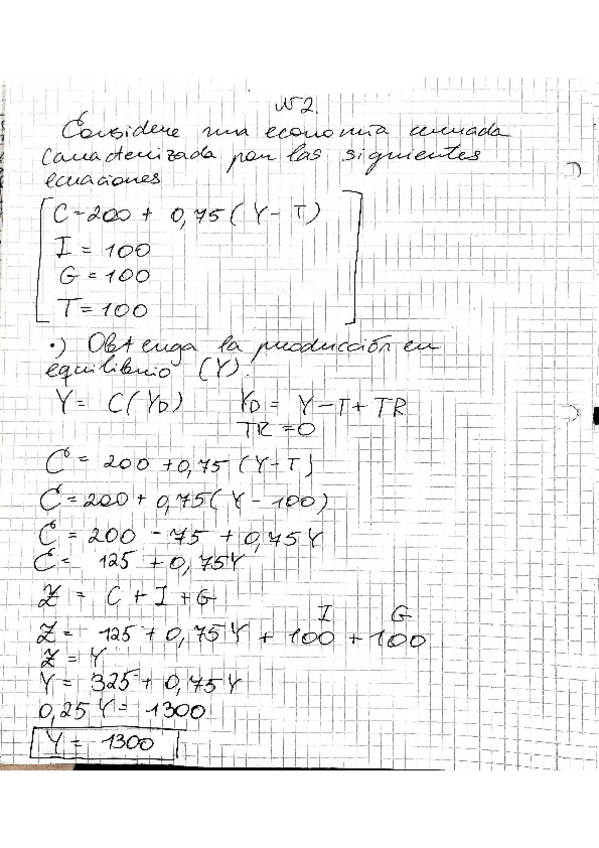 №2.
Considere una economía cerrada
caracterizada por las siguientes
ecuaciones
C=200 + 0,75 (Y-T)
I = 100
G = 100
T=100
•) Obtenga la producción en
equilibrio (Y).
Y = C(YD) YD = Y-T+TR
TR =0
C = 200 +0,75 (Y-T)
C=200+ 0,75(Y-100)
C = 200 -75 +0,75Y
C = 125 +0,75Y
Z = C+I+G
I G
Z = 125 +0,75Y + 100 +100
Z = Y
Y = 325 + 0,75Y
0,25Y = 1300
Y = 1300